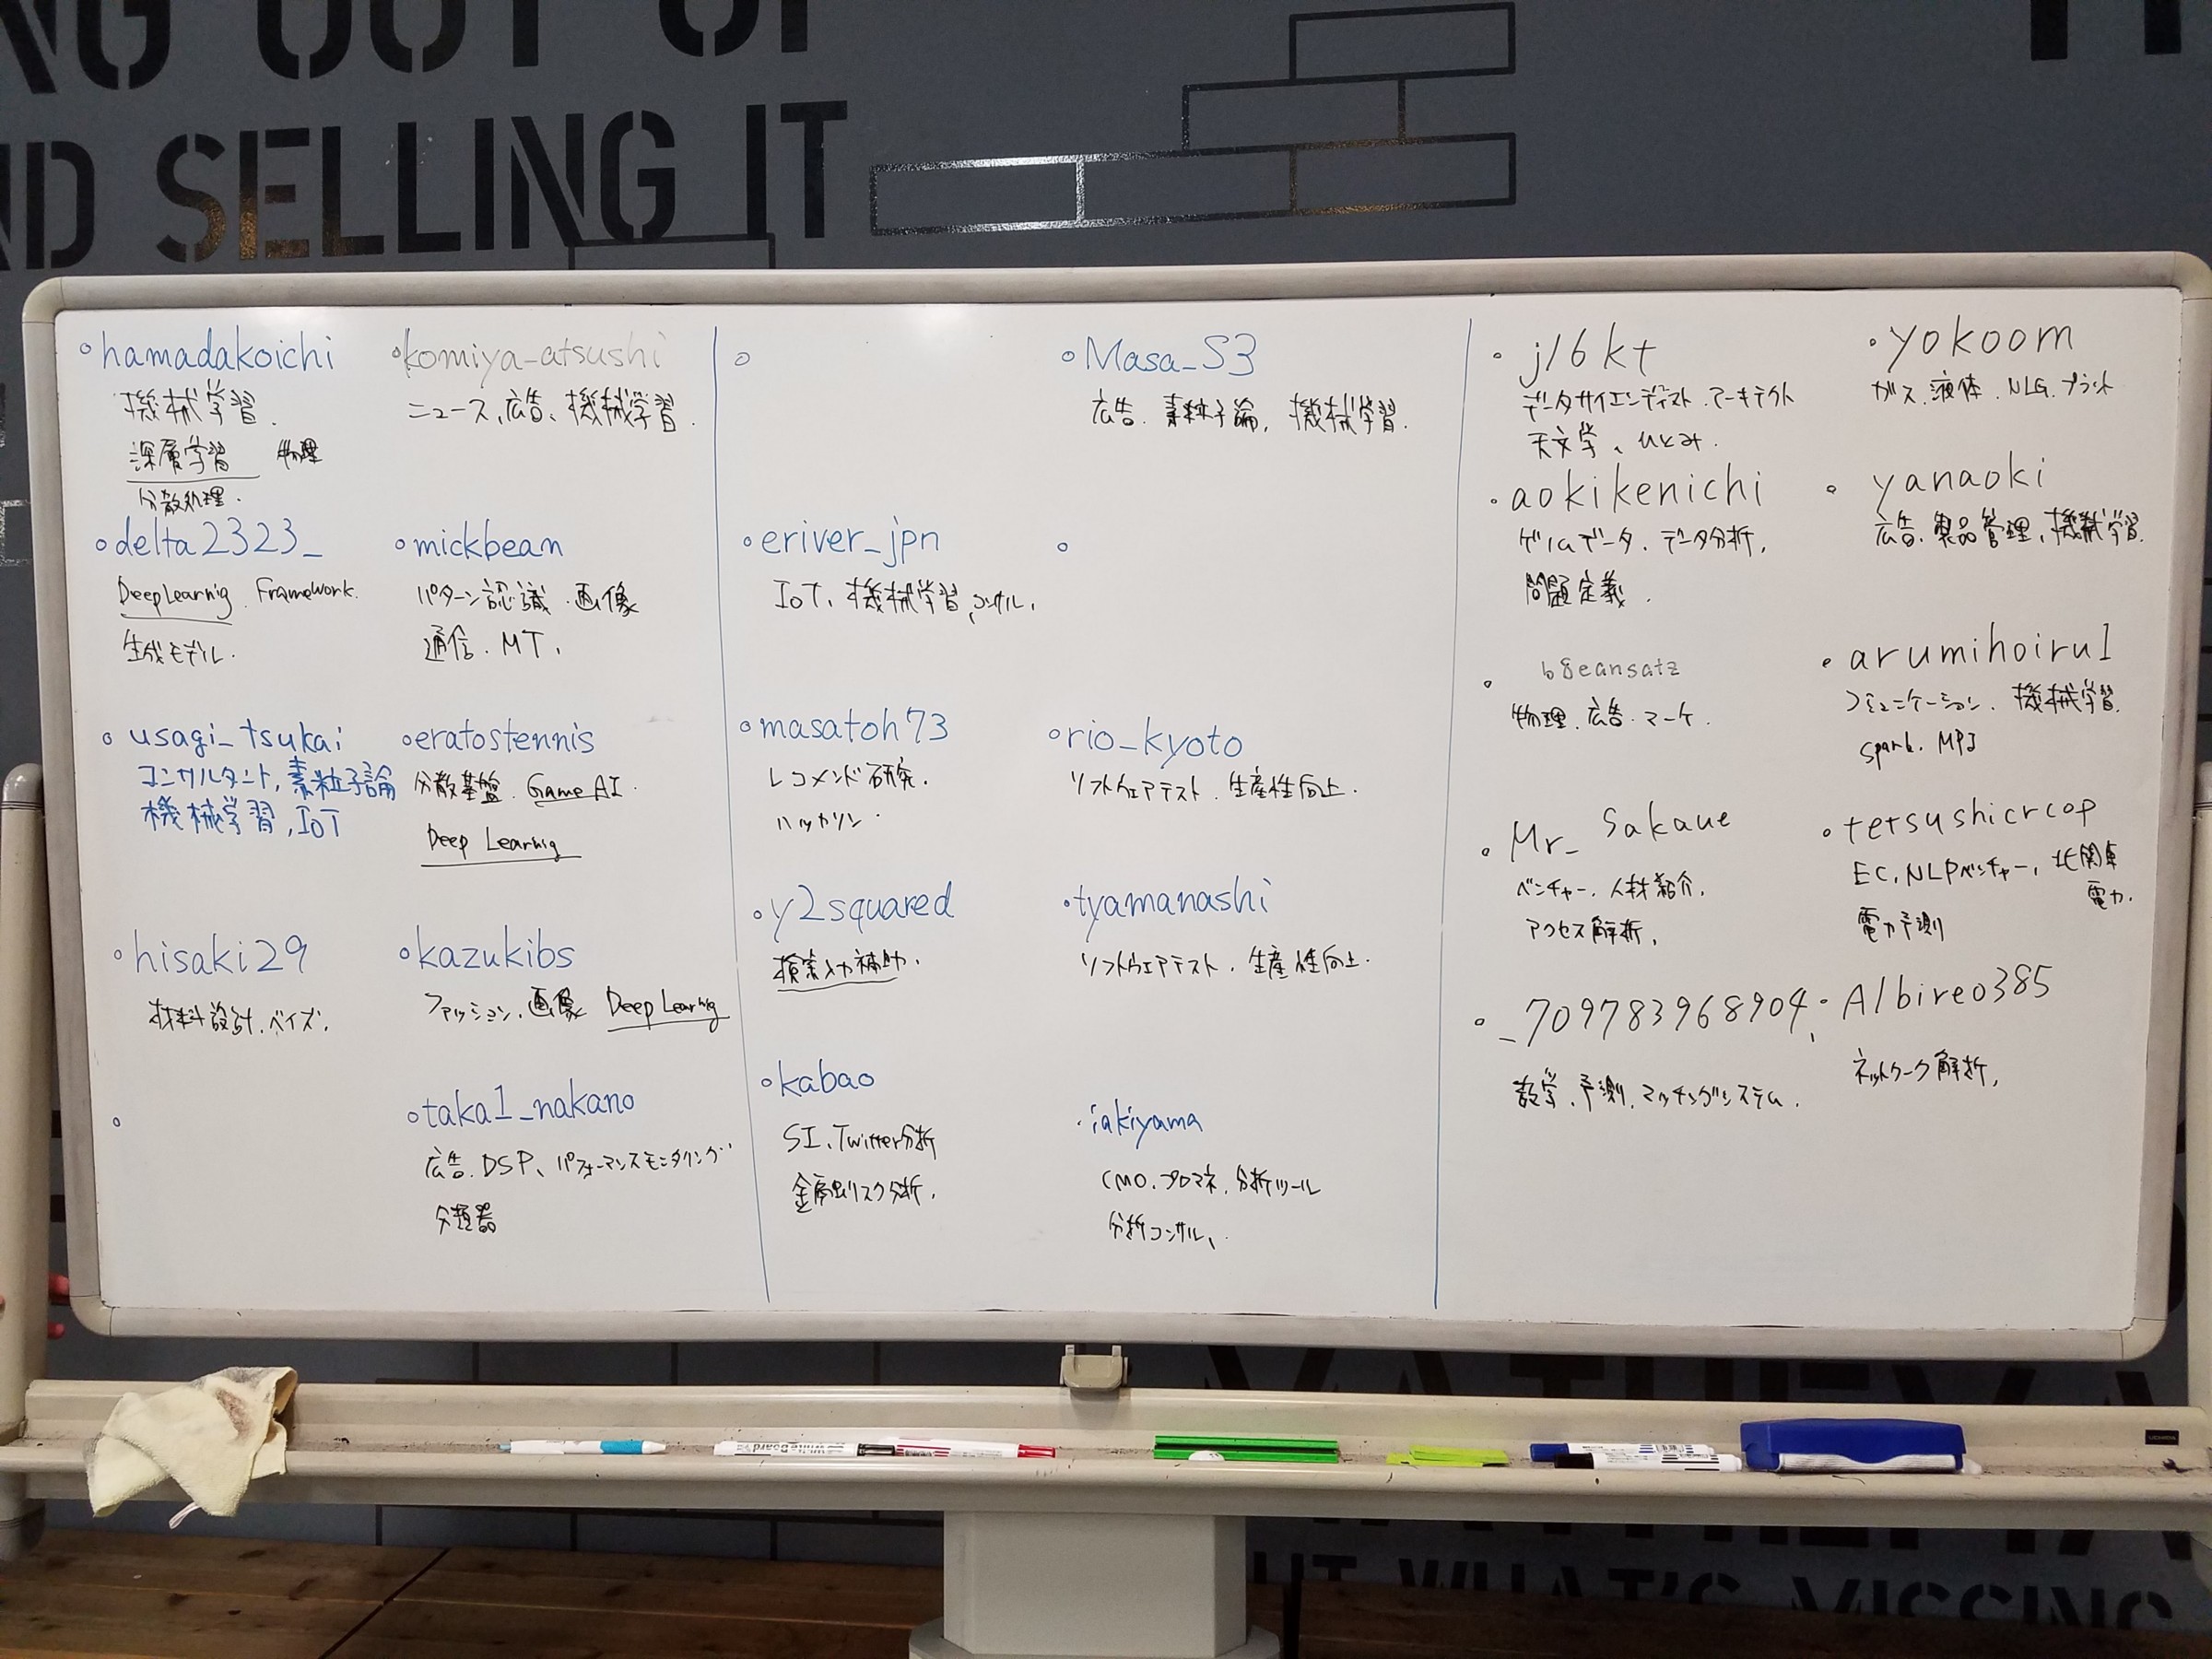 NG OUT OF
ND SELLING IT
hamadakoichi
機械学習.
深層学習 物理
分散処理.
komiya_atsushi
ニュース、広告、機械学習.
delta2323_
DeepLearnig. Framework.
生成モデル.
mickbean
パターン認識.画像
通信.MT,
usagi_tsukai
コンサルタント,素粒子論
機械学習,IoT
eratostennis
分散基盤.GameAI.
Deep Learnig
hisaki29
材料設計.ベイズ.
kazukibs
ファッション.画像 Deep Learnig
taka1_nakano
広告.DSP、パフォーマンスモニタリング
分類器
Masa_S3
広告.素粒子論,機械学習.
eriver_jpn
IoT,機械学習,コンサル,
masatoh73
レコメンド研究.
ハッカソン.
rio_kyoto
ソフトウェアテスト.生産性向上.
y2squared
検索入力補助.
tyamanashi
ソフトウェアテスト.生産性向上.
kabao
SI、Twitter分析
金融リスク分析.
iakiyama
CMO.プロマネ.分析ツール
分析コンサル、
j16kt
データサイエンティスト.アーキテクト
天文学、ひとみ.
yokoom
ガス.液体.NLG.プラント
aokikenichi
ゲームデータ.データ分析,
問題定義.
yanaoki
広告.製品管理,機械学習.
b8eansatz
物理.広告.マーケ.
arumihoiru1
コミュニケーション.機械学習.
spark.MPI
Mr_Sakaue
ベンチャー.人材紹介,
アクセス解析,
tetsushicrcop
EC,NLPベンチャー,北関東
電力.
電力予測
_709783968904,
数学.予測.マッチングシステム.
Albireo385
ネットワーク解析,
UT WHAT'S MISSING